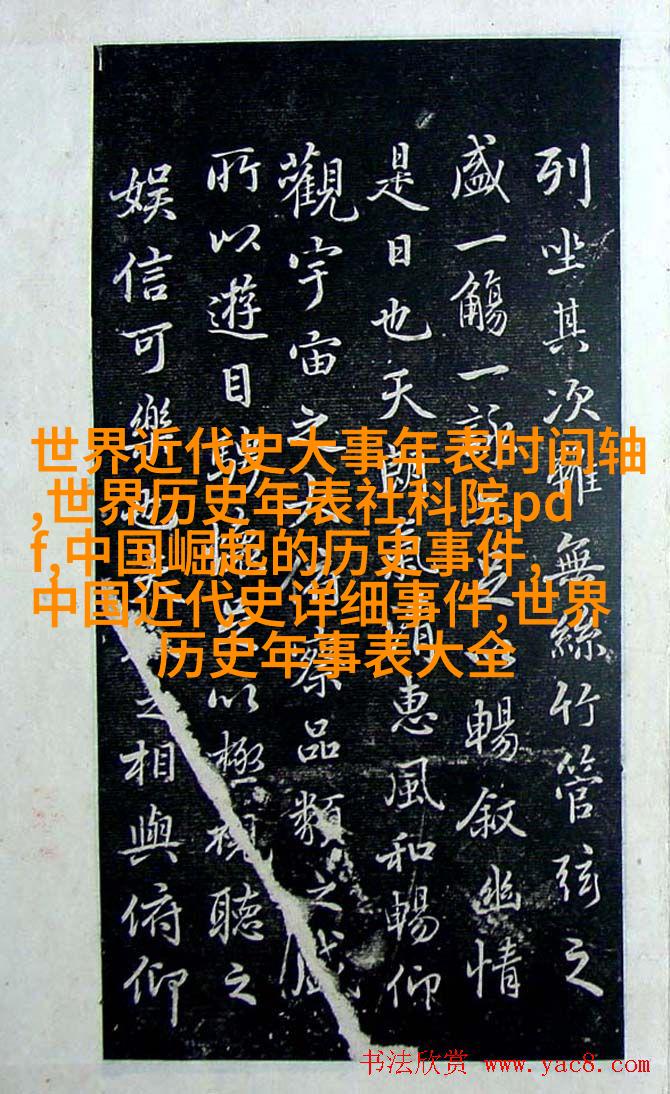 列坐其次雖無絲竹管弦之
盛一觴一詠亦足以暢叙幽情
是日也天朗氣清惠風和暢仰
觀宇宙之大俯察品類之盛
所以遊目騁懷足以極視聽之
娛信可樂也夫之相與俯仰
世界近代史大事年表时间轴
,世界历史年表社科院pd
f,中国崛起的历史事件,
中国近代史详细事件,世界
历史年事表大全
书法欣赏 www.yac8.com